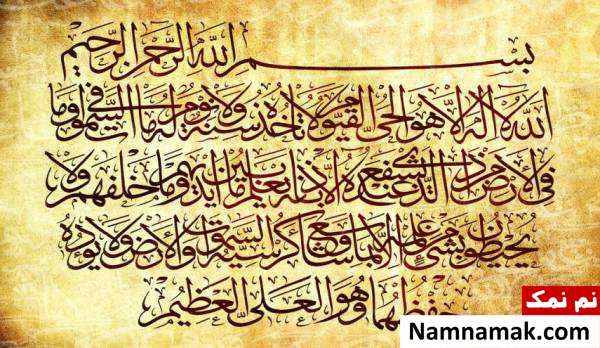 بسم الله الرحمن الرحيم
الله لا اله الا هو الحي القيوم لا تأخذه سنة ولا نوم له ما في السموات وما
في الأرض من ذا الذي يشفع عنده إلا بإذنه يعلم ما بين أيديهم وما خلفهم ولا
يحيطون بشيء من علمه إلا بما شاء وسع كرسيه السموات والأرض ولا يؤده
حفظهما وهو العلي العظيم
نم نمک
Namnamak.com